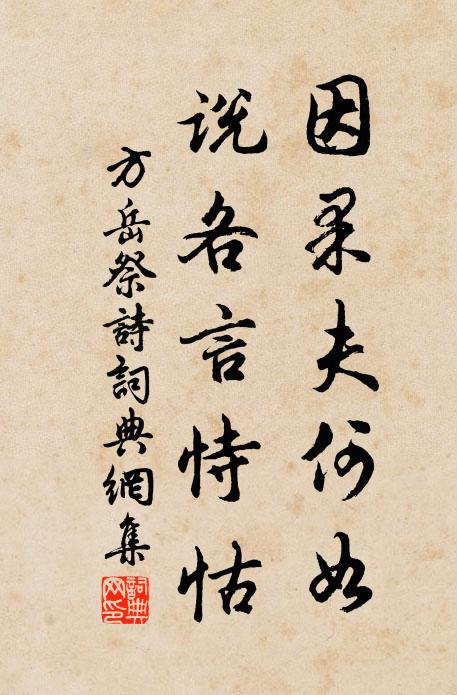 因果夫何如
说各言恃怙
方岳祭詩詞典網集
詞典網印